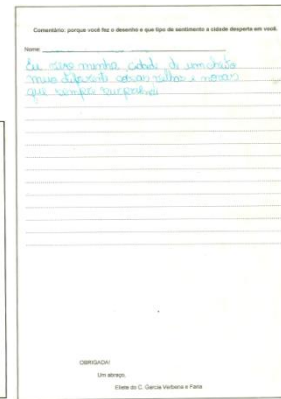 Comentário: porque você fez o desenho e que tipo de sentimento a cidade desperta em você.
Nome
Eu vivo minha cidade, de um
diferente coisas velhas e novas
que sempre
OBRIGADA!
Um abraço,
Eliete do C. Garcia Verbena e Faria